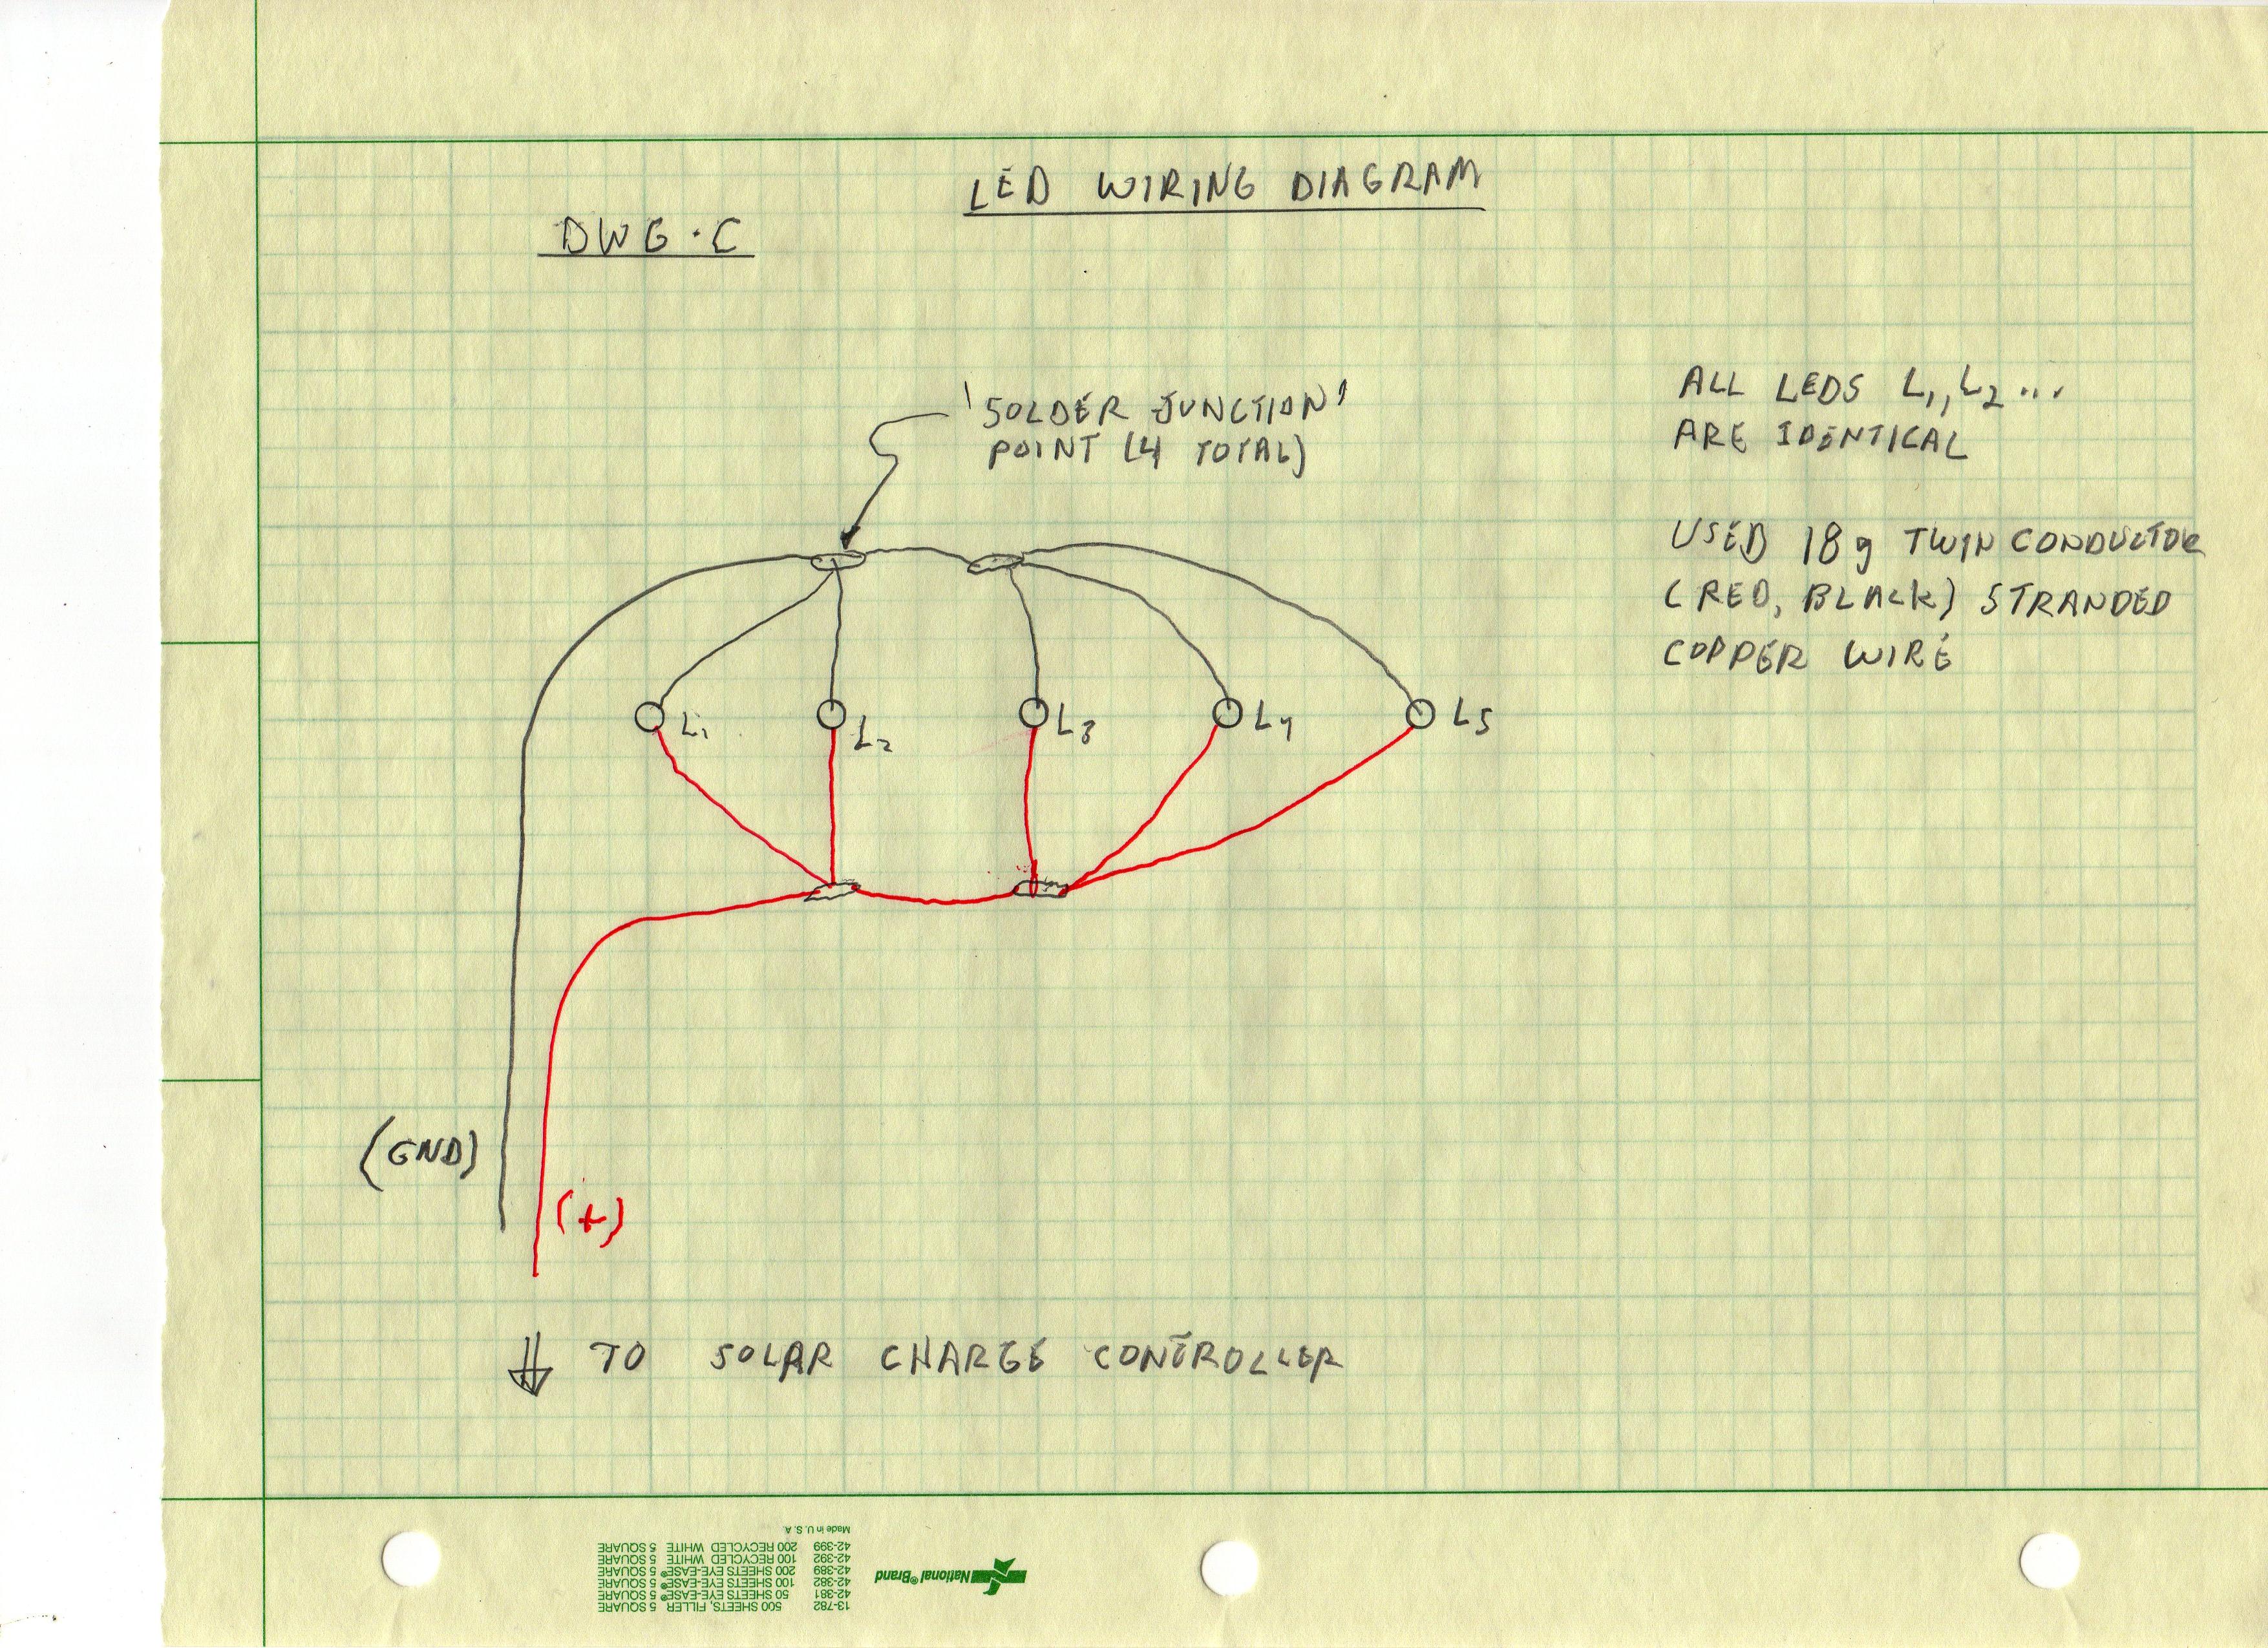 LED WIRING DIAGRAM
DWG.C
'SOLDER JUNCTION'
POINT (4 TOTAL)
ALL LEDS L1, L2 ...
ARE IDENTICAL
USED 18g TWIN CONDUCTOR
(RED, BLACK) STRANDED
COPPER WIRE
L1
L2
L3
L4
L5
(GND)
(+)
TO SOLAR CHARGE CONTROLLER
13-782 500 SHEETS, FILLER 5 SQUARE
42-381 50 SHEETS EYE-EASE® 5 SQUARE
42-382 100 SHEETS EYE-EASE® 5 SQUARE
42-389 200 SHEETS EYE-EASE® 5 SQUARE
42-392 100 RECYCLED WHITE 5 SQUARE
42-399 200 RECYCLED WHITE 5 SQUARE
Made in U.S.A.
National® Brand